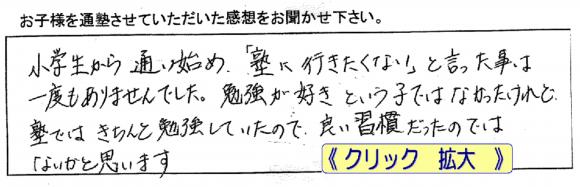 お子様を通塾させていただいた感想をお聞かせ下さい。
小学生から通い始め、「塾に行きたくない」と言った事は
一度もありませんでした。勉強が好きという子ではなかったけれど、
塾ではきちんと勉強していたので、良い習慣だったのでは
ないかと思います
《クリック 拡大 》